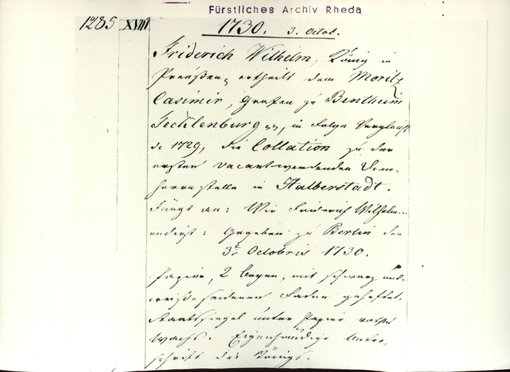 Fürstliches Archiv Rheda
1285 XVIII 1730. 3. Octob.
Friderich Wilhelm, König in
Preüßen, ertheilt dem Moritz
Casimir, Grafen zu Bentheim
Tecklenburg in Folge Vergleichs
de 1729, die Collation zu der
ersten vacant werdenden Dom-
herrnstelle in Halberstadt.
Fängt an: Wir Friderich Wilhelm
endigt: Gegeben zu Berlin den
3. Octobris 1730.
Papier, 2 bogen, mit schwarz und
weiß seidenen Faden geheftet.
Staatssiegel unter Papier roths
Wachs. Eigenhändige Unter-
schrift des Königs.